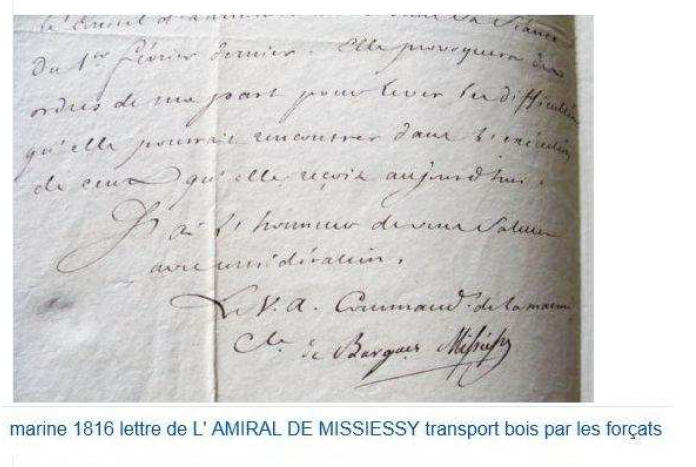 le Conseil d'administration dans sa Séance
Du 1er février dernier. Elle provoquera des
ordres de ma part pour lever les difficultés
qu'elle pourrait rencontrer dans l'exécution
de ceux qu'elle reçoit aujourd'hui.
J'ai l'honneur de vous Saluer
avec considération.
Le V. A. Command.t de la marine
Cte de Burgues Missiessy
marine 1816 lettre de L' AMIRAL DE MISSIESSY transport bois par les forçats